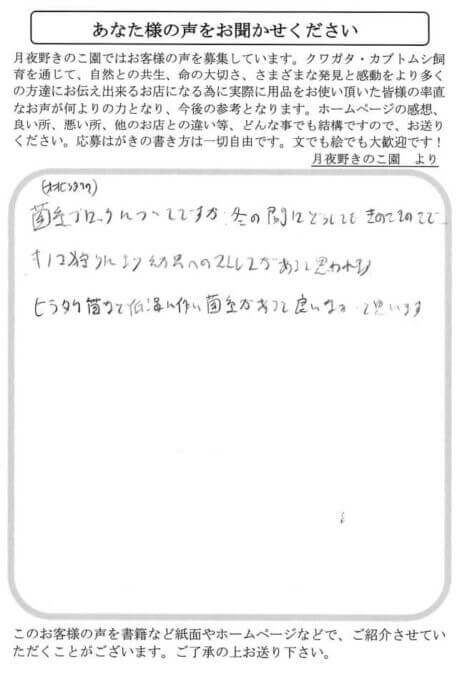 あなた様の声をお聞かせください
月夜野きのこ園ではお客様の声を募集しています。クワガタ・カブトムシ飼
育を通じて、自然との共生、命の大切さ、さまざまな発見と感動をより多く
の方達にお伝え出来るお店になる為に実際に用品をお使い頂いた皆様の率直
なお声が何よりの力となり、今後の参考となります。ホームページの感想、
良い所、悪い所、他のお店との違い等、どんな事でも結構ですので、お送り
ください。応募はがきの書き方は一切自由です。文でも絵でも大歓迎です！
月夜野きのこ園　より
菌糸ブロックについてですが、冬の間はどうしてもきのこでるので
キノコ狩りにより幼虫へのストレスがあると思われる
ヒラタケ菌など低温に 菌糸があると良いなぁ〜と思います
このお客様の声を書籍など紙面やホームページなどで、ご紹介させてい
ただくことがございます。ご了承の上お送り下さい。